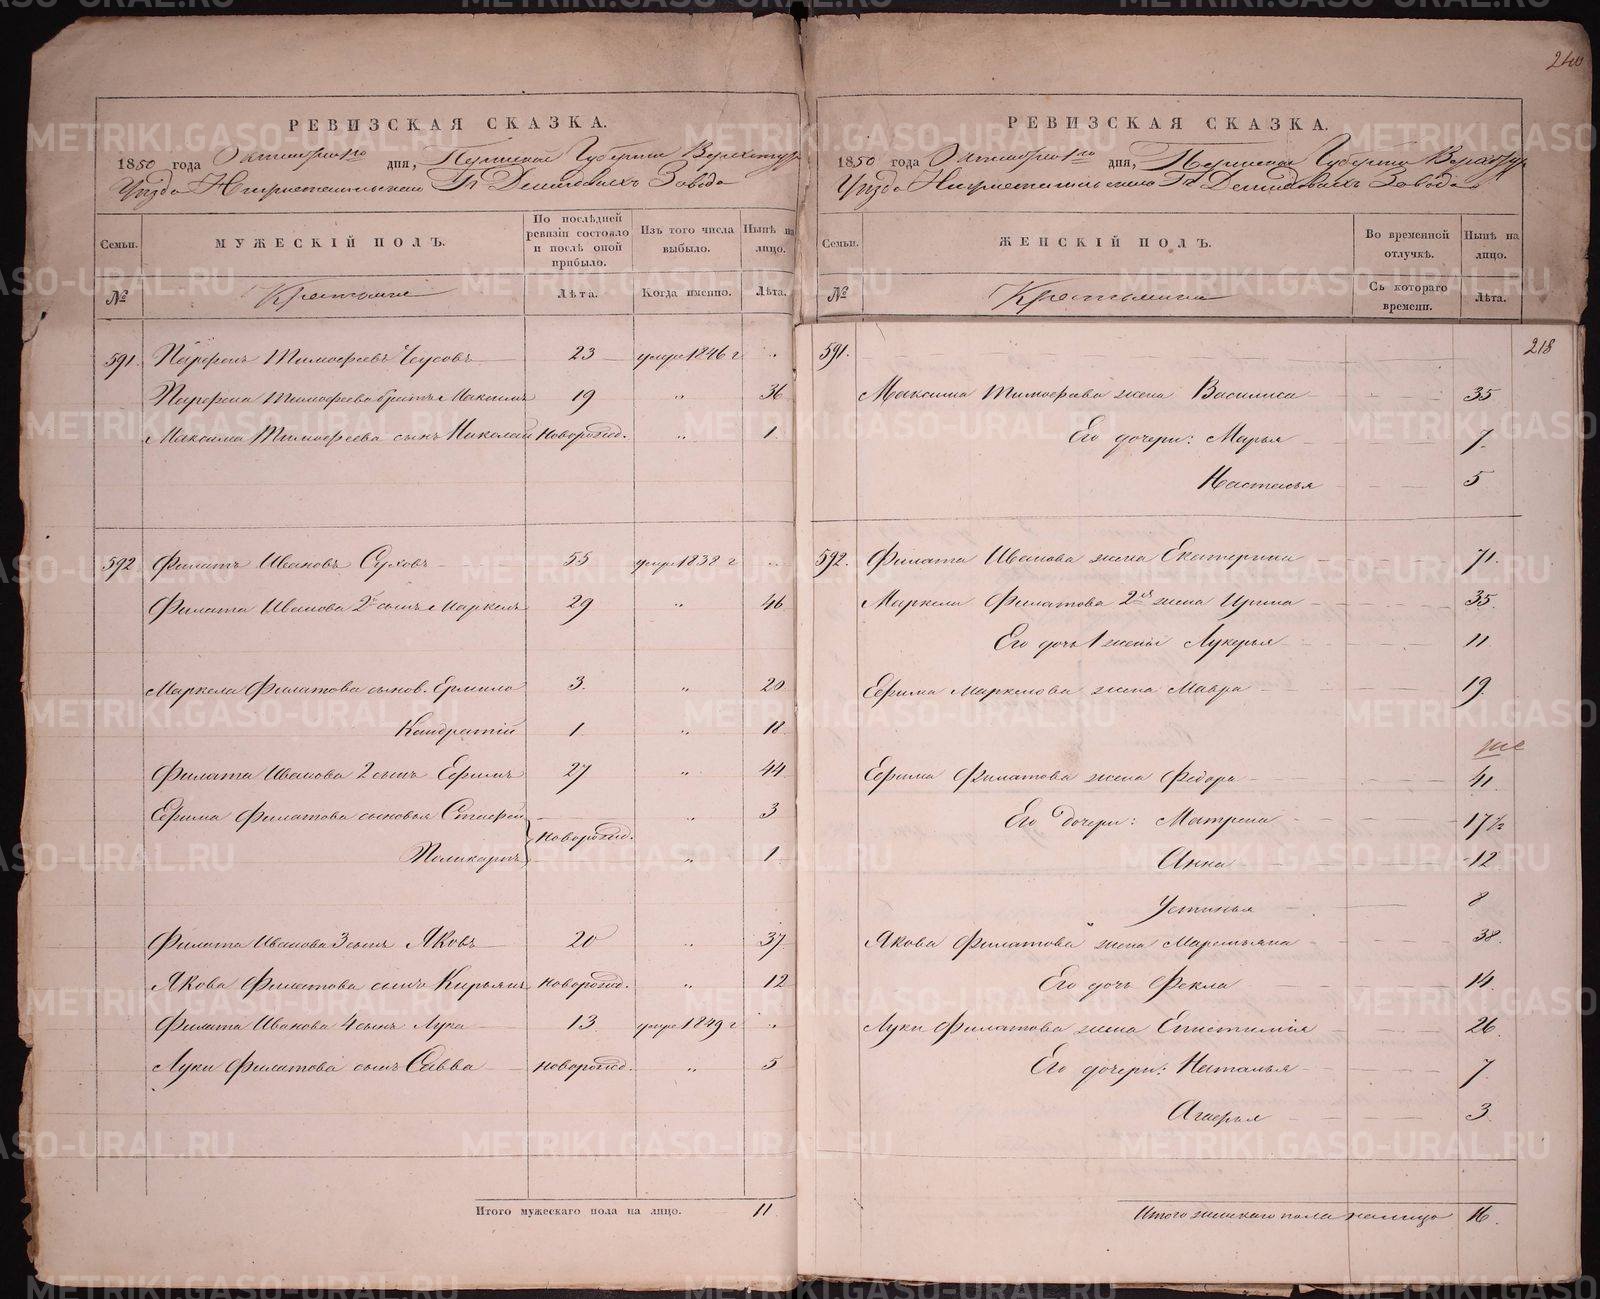 240
РЕВИЗСКАЯ СКАЗКА.
1850 года Октября 1го дня, Пермской Губернiи Верхотур
Уѣзда Нижнетагильскаго Гг. Демидовыхъ Завода
Семьи. МУЖЕСКІЙ ПОЛЪ. По послѣдней ревизіи состояло и послѣ оной прибыло. Изъ того числа выбыло. Нынѣ на лицо.
№ Крестьяне Лѣта. Когда именно. Лѣта.
591. Парфенъ Тимофеевъ Чусовъ 23 умре 1846 г "
Парфена Тимофеева братъ Максимъ 19 " 36
Максима Тимофеева сынъ Николай новорожд. " 1
592 Филатъ Ивановъ Суховъ 55 умре 1838 г "
Филата Иванова сынъ Маркелъ 29 " 46
Маркела Филатова сынов. Ермило 3 " 20
Кондратій 1 " 18
Филата Иванова 2 сынъ Ефимъ 27 " 44
Ефима Филатова сыновья 3
новорожд.
Поликарпъ " 1
Филата Иванова 3 сынъ Яковъ 20 " 37
Якова Филатова сынъ Кирьянъ новорожд. " 12
Филата Иванова 4 сынъ Лука 13 умре 1849 г "
Луки Филатова сынъ Савва новорожд. " 5
Итого мужескаго пола на лицо. 11
РЕВИЗСКАЯ СКАЗКА.
1850 года Октября 1го дня, Пермской Губерніи Верхотур
Уѣзда Нижнетагильскаго Гг. Демидовыхъ Завода
Семьи. ЖЕНСКІЙ ПОЛЪ. Во временной отлучкѣ. Нынѣ на лицо.
№ Крестьянки Съ котораго времени. Лѣта.
591. 218
Максима Тимофеева жена Василиса 35
Его дочери: Марья 7
Настасья 5
592. Филата Иванова жена Екатерина 71.
Маркела Филатова 2я жена Ирина 35.
Его дочь 1 жены Лукерья 11
Маркелова жена Мавра 19
Ефима Филатова жена Федора 41
Его дочери: Матрена 17½
Анна 12
Устинья 8
Якова Филатова жена Маремьяна 38.
Его дочь Фекла 14
Луки Филатова жена Епистимія 26
Его дочери: Наталья 7
Агафья 3
Итого женскаго пола налицо 16.
METRIKI.GASO-URAL.RU